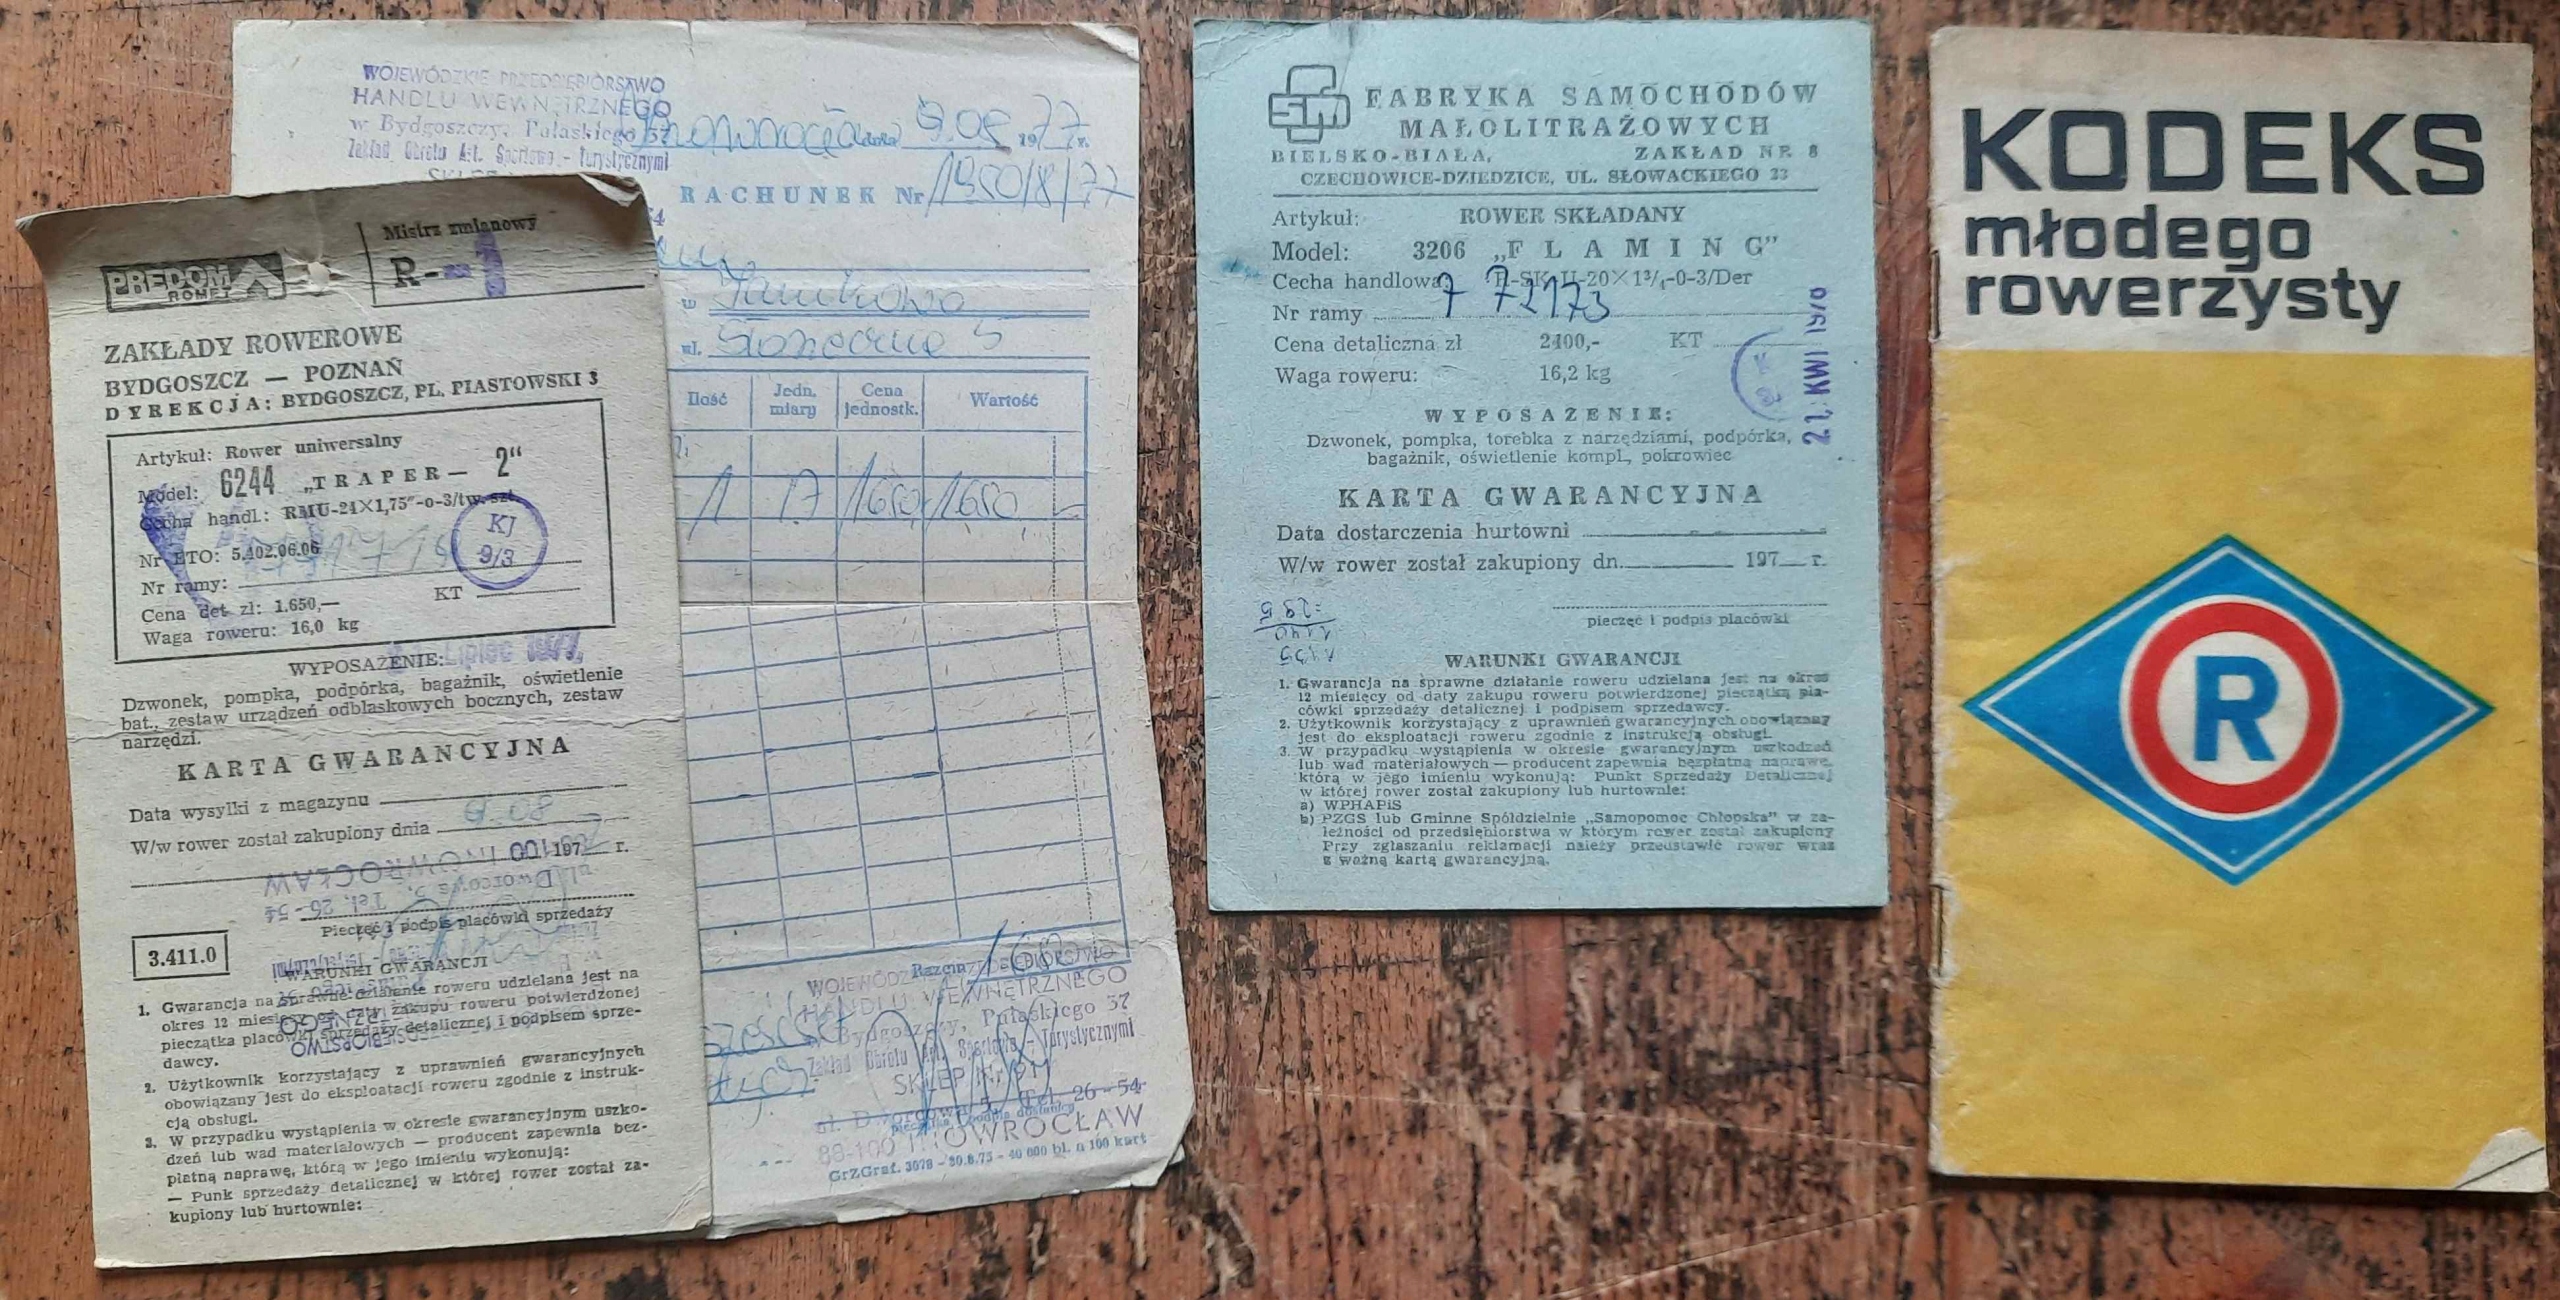 PREDOM
ROMET
Mistrz zmianowy
R-1
ZAKŁADY ROWEROWE
BYDGOSZCZ — POZNAŃ
DYREKCJA: BYDGOSZCZ, PL. PIASTOWSKI 3
Artykuł: Rower uniwersalny
Model: 6244 „TRAPER — 2“
Cecha handl.: RMU-24×1,75"-0-3/tw. szt.
Nr ETO: 5.402.06.06
Nr ramy:
KT
KJ
9/3
Cena det. zł: 1.650,—
Waga roweru: 16,0 kg
Lipiec 1977
WYPOSAŻENIE:
Dzwonek, pompka, podpórka, bagażnik, oświetlenie
bat., zestaw urządzeń odblaskowych bocznych, zestaw
narzędzi.
KARTA GWARANCYJNA
Data wysyłki z magazynu
W/w rower został zakupiony dnia 9.08
197 7 r.
Pieczęć i podpis placówki sprzedaży
3.411.0
WARUNKI GWARANCJI
1. Gwarancja na sprawne działanie roweru udzielana jest na
okres 12 miesięcy od daty zakupu roweru potwierdzonej
pieczątką placówki sprzedaży detalicznej i podpisem sprze-
dawcy.
2. Użytkownik korzystający z uprawnień gwarancyjnych
obowiązany jest do eksploatacji roweru zgodnie z instruk-
cją obsługi.
3. W przypadku wystąpienia w okresie gwarancyjnym uszko-
dzeń lub wad materiałowych — producent zapewnia bez-
płatną naprawę, którą w jego imieniu wykonują:
— Punk sprzedaży detalicznej w której rower został za-
kupiony lub hurtownie:
WOJEWÓDZKIE PRZEDSIĘBIORSTWO
HANDLU WEWNĘTRZNEGO
w Bydgoszczy, Pułaskiego 37
Zakład Obrotu Art. Sportowo - Turystycznymi
dnia 9.08 1977 r.
RACHUNEK Nr 1950/8/77
w Janikowo
ul. Słoneczna 5
Ilość
Jedn. miary
Cena jednostk.
Wartość
1
1650
1650
Razem
WOJEWÓDZKIE PRZEDSIĘBIORSTWO
HANDLU WEWNĘTRZNEGO
w Bydgoszczy, Pułaskiego 37
Zakład Obrotu Art. Sportowo - Turystycznymi
SKLEP Nr 911
ul. Dworcowa 5, Tel. 26-54
88-100 INOWROCŁAW
GrZGraf. 3078 - 30.8.75 - 40 000 bl. a 100 kart
FSM
FABRYKA SAMOCHODÓW
MAŁOLITRAŻOWYCH
BIELSKO-BIAŁA, ZAKŁAD NR 8
CZECHOWICE-DZIEDZICE, UL. SŁOWACKIEGO 33
Artykuł: ROWER SKŁADANY
Model: 3206 „FLAMING”
Cecha handlowa: R-SK-U-20×1³/₄-0-3/Der
Nr ramy 7 72173
Cena detaliczna zł 2100,- KT
Waga roweru: 16,2 kg
21. KWI 1978
WYPOSAŻENIE:
Dzwonek, pompka, torebka z narzędziami, podpórka,
bagażnik, oświetlenie kompl., pokrowiec
KARTA GWARANCYJNA
Data dostarczenia hurtowni
W/w rower został zakupiony dn. 197 r.
pieczęć i podpis placówki
WARUNKI GWARANCJI
1. Gwarancja na sprawne działanie roweru udzielana jest na okres
12 miesięcy od daty zakupu roweru potwierdzonej pieczątką pla-
cówki sprzedaży detalicznej i podpisem sprzedawcy.
2. Użytkownik korzystający z uprawnień gwarancyjnych obowiązany
jest do eksploatacji roweru zgodnie z instrukcją obsługi.
3. W przypadku wystąpienia w okresie gwarancyjnym uszkodzeń
lub wad materiałowych — producent zapewnia bezpłatną naprawę,
którą w jego imieniu wykonują: Punkt Sprzedaży Detalicznej
w której rower został zakupiony lub hurtownie:
a) WPHAPiS
b) PZGS lub Gminne Spółdzielnie „Samopomoc Chłopska” w za-
leżności od przedsiębiorstwa w którym rower został zakupiony
Przy zgłaszaniu reklamacji należy przedstawić rower wraz
z ważną kartą gwarancyjną.
KODEKS
młodego
rowerzysty
R